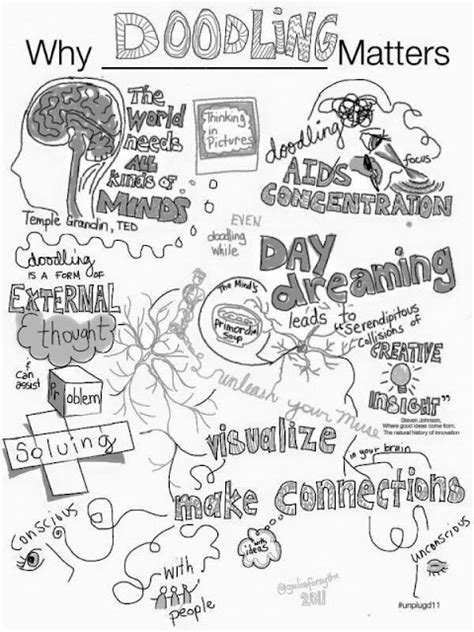 Why DOODLING Matters
The
World
needs
ALL
kinds of
MINDS
Temple Grandin, TED
Thinking
in
Pictures
doodling
AIDS
CONCENTRATION
focus
EVEN
doodling
while
DAY
dreaming
leads to
"serendipitous
collisions of
CREATIVE
INSIGHT"
Steven Johnson,
Where good ideas come from,
The natural history of innovation
doodling
IS A FORM OF
EXTERNAL
thought
&
Can
assist
Problem
Solving
The Mind's
Primordial
Soup
unleash your muse
visualize
make connections
in your brain
conscious
unconscious
with
ideas
with
people
@giuliaforsythe
2011
#unplugd11